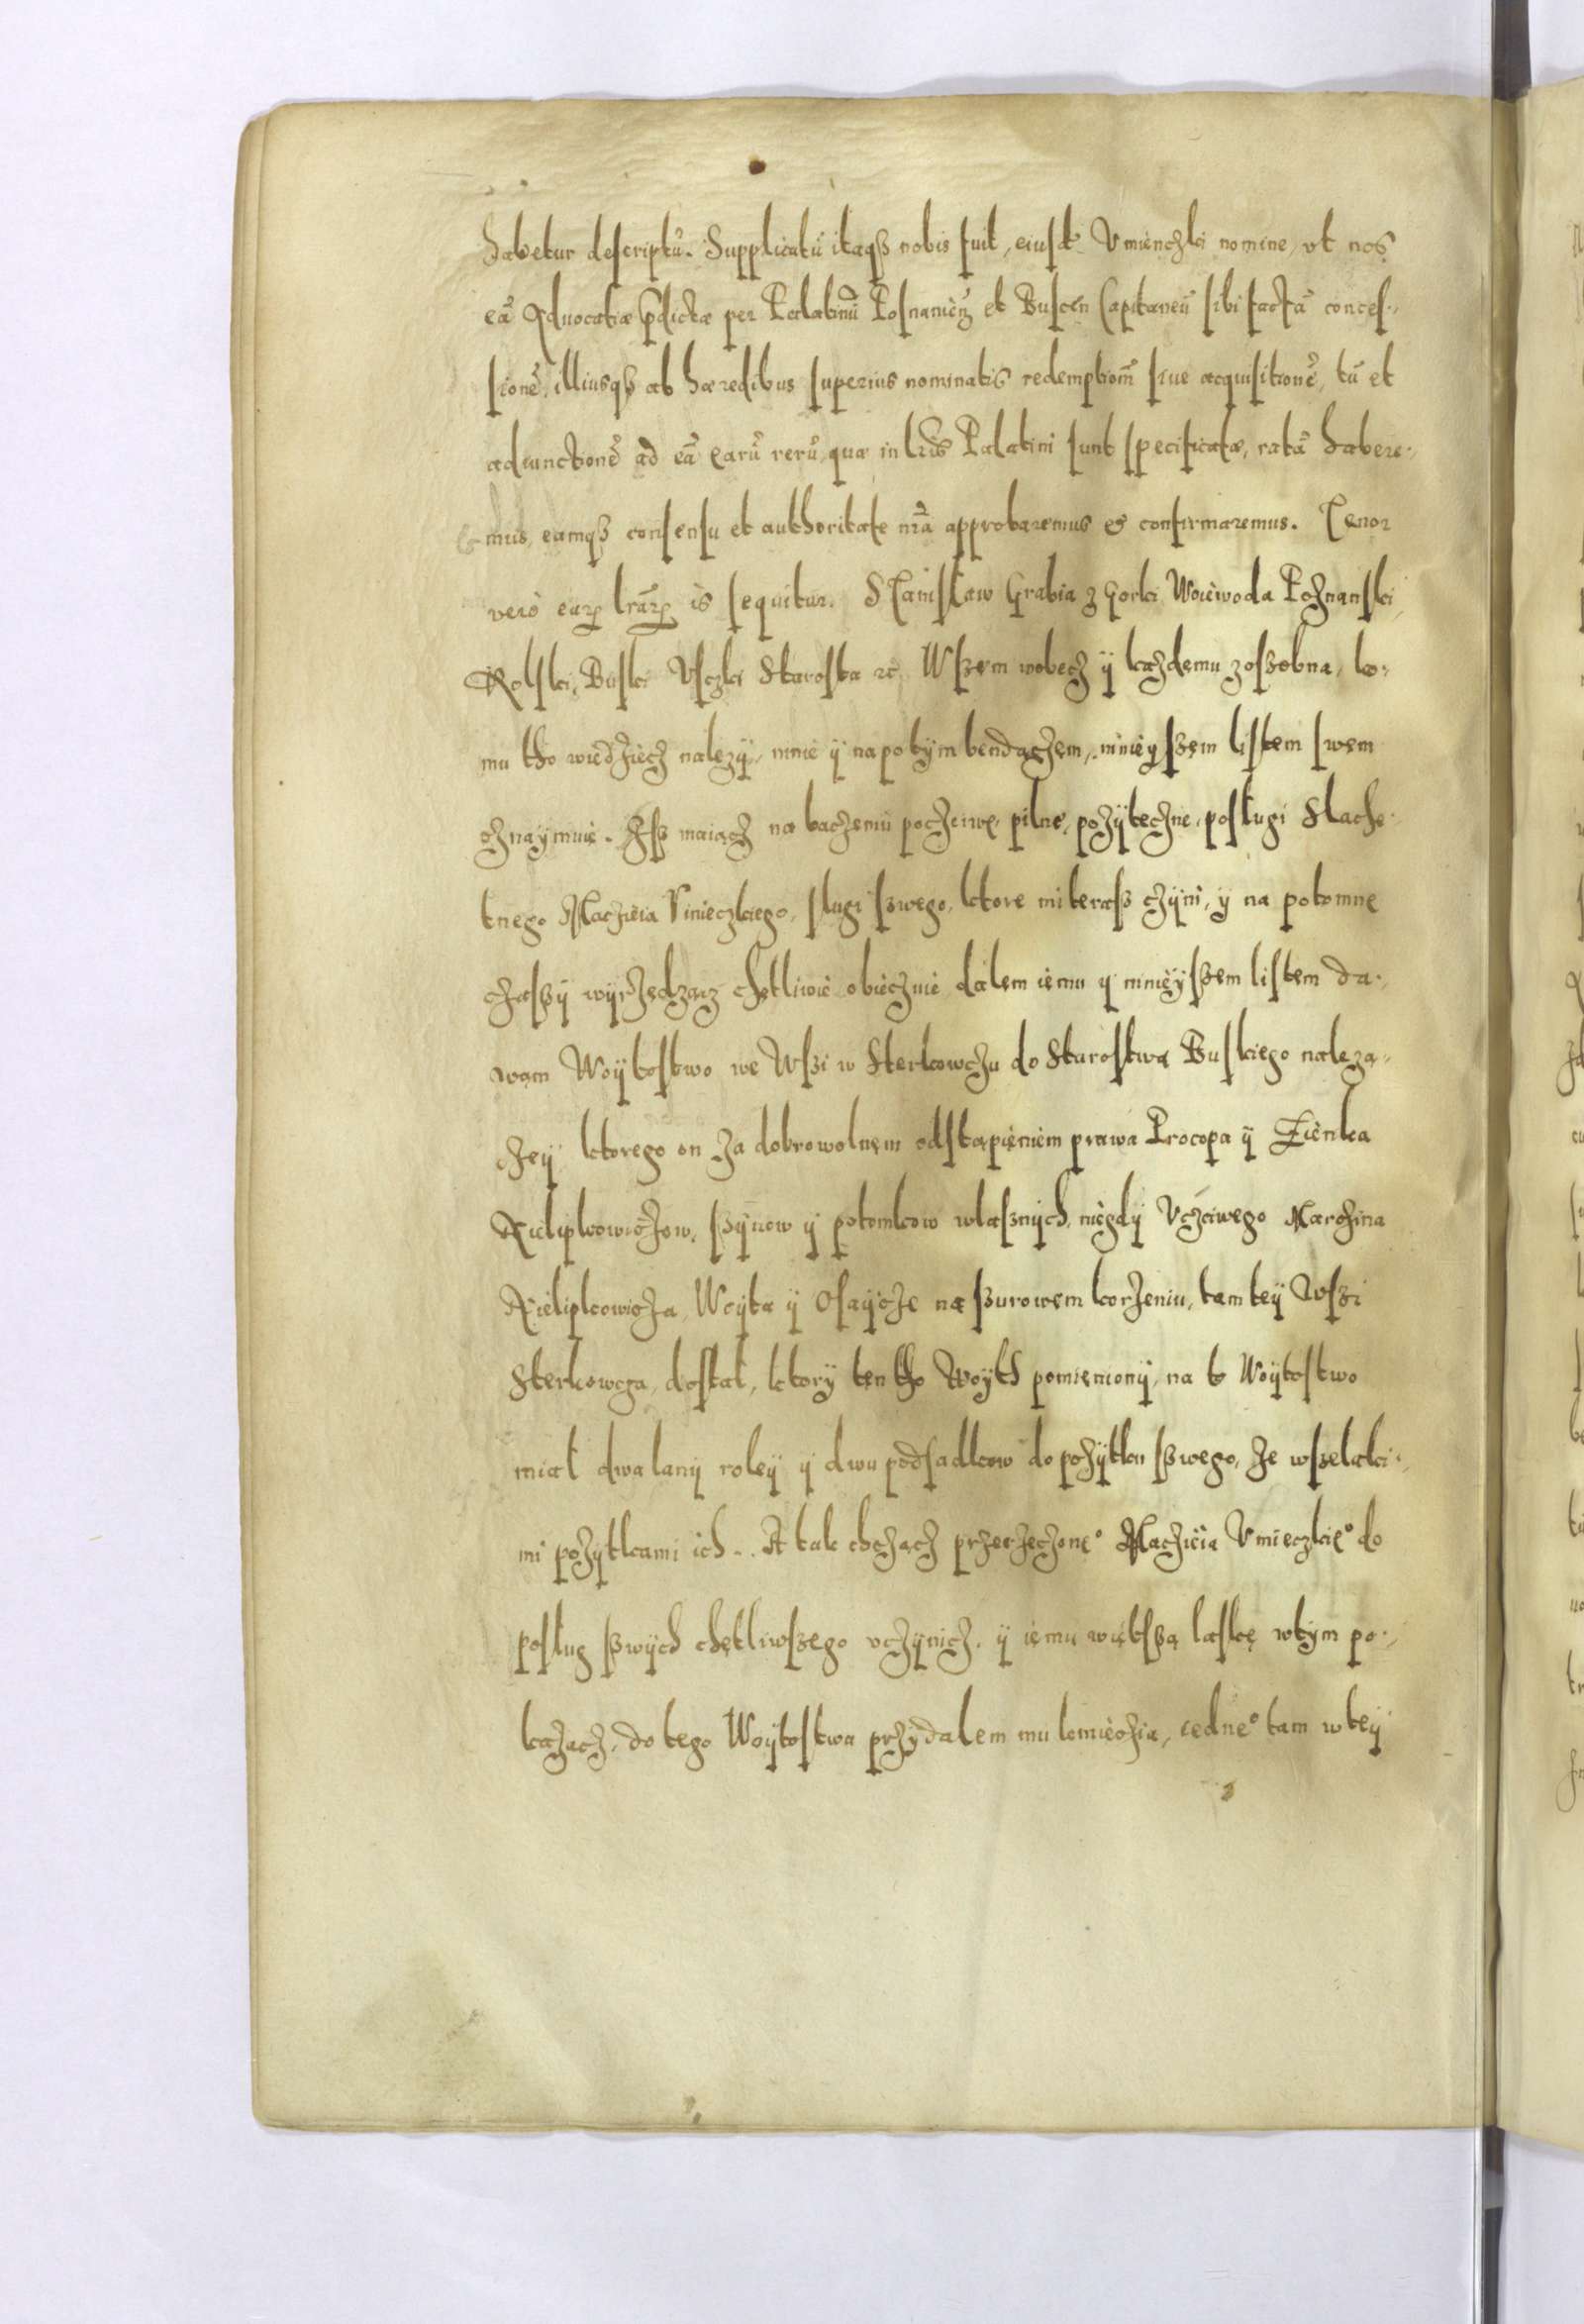 habetur descriptũ. Supplicatũ itaqꝫ nobis fuit, eiusd. Vmienczki nomine, vt nos
eã Aduocatiæ p̱dictæ per Palatinũ Posnanieñ et Buscen̄ Capitaneũ sibi factã conces-
sionẽ, illiusqꝫ ab hæredibus superius nominatis redemptionẽ siue acquisitionẽ, tũ et
adiunctionẽ ad eã earũ rerũ, quæ in lr̃is Palatini sunt specificatæ, ratã habere-
mus, eamqꝫ consensu et authoritate nr̃a approbaremus et confirmaremus. Tenor
verò earꝝ lr̃arꝝ is sequitur. Stanisław Grabia z Gorki Woiewoda Poznanski,
Kolski, Buski Vsczki Starosta ꝛc. Wszem wobecz ÿ kazdemu zoszobna, ko-
mu tho wiedziecz nalezÿ, ninie ÿ napotÿm bendaczem, ninieÿszem listem swem
oznaÿmuie. Isz maiacz na baczeniu poczciwe, pilne, pozÿteczne, poslugi Slache-
tnego Maczieia Vmieczkiego, slugi szwego, ktore mi terasz czÿni, ÿ na potomne
czaszÿ wÿrzadzacz chętliwie obiecznie dałem iemu ÿ ninieÿszem listem da-
wam Woÿtostwo we Wszi w Sterkowczu do Starostwa Buskiego naleza-
czeÿ, ktorego on za dobrowolnem odstąpieniem prawa Procopa ÿ Zienka
Kielipkowiczow, szÿnow ÿ potomkow wlasznÿch, niegdÿ Vczciwego Marczina
Kielipkowicza, Woÿta ÿ Osaÿcze na szurowem korzeniu, tam teÿ Wszi
Sterkowcza, dostał, ktorÿ ten tho Woÿth pomienionÿ, na to Woÿtostwo
miał dwa lanÿ roleÿ ÿ dwu podsadkow do pozÿtku szwego, ze wszelaki-
mi pozÿtkami ich. A tak chcząch przerzeczoneº Maczieia Vmieczkieº do
poslug szwÿch chętliwszego vczÿnicz, ÿ iemu więtszą laskę wtÿm po-
kazacz, do tego Woÿtostwa przÿdalem mu kmieczia, iedneº tam w teÿ